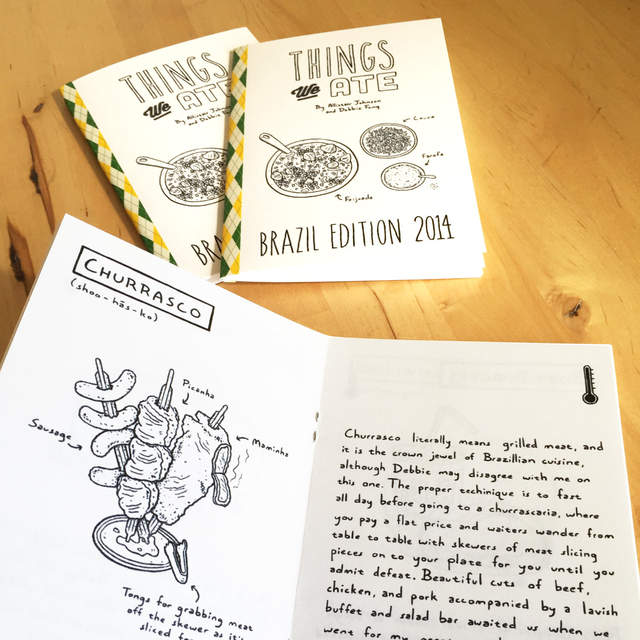 THINGS
We ATE
By Allister Johnson
and Debbie Fong
BR
THINGS
We ATE
By Allister Johnson
and Debbie Fong
Couve
Farofa
Feijoada
BRAZIL EDITION 2014
CHURRASCO
(shoo-hās-ko)
Picanha
Sausage
Maminha
Tongs for grabbing meat
off the skewer as it's
sliced
Churrasco literally means grilled meat, and
it is the crown jewel of Brazillian cuisine,
although Debbie may disagree with me on
this one. The proper techinique is to fast
all day before going to a churrascaria, where
you pay a flat price and waiters wander from
table to table with skewers of meat slicing
pieces on to your plate for you until you
admit defeat. Beautiful cuts of beef,
chicken, and pork accompanied by a lavish
buffet and salad bar awaited us when we
went for my